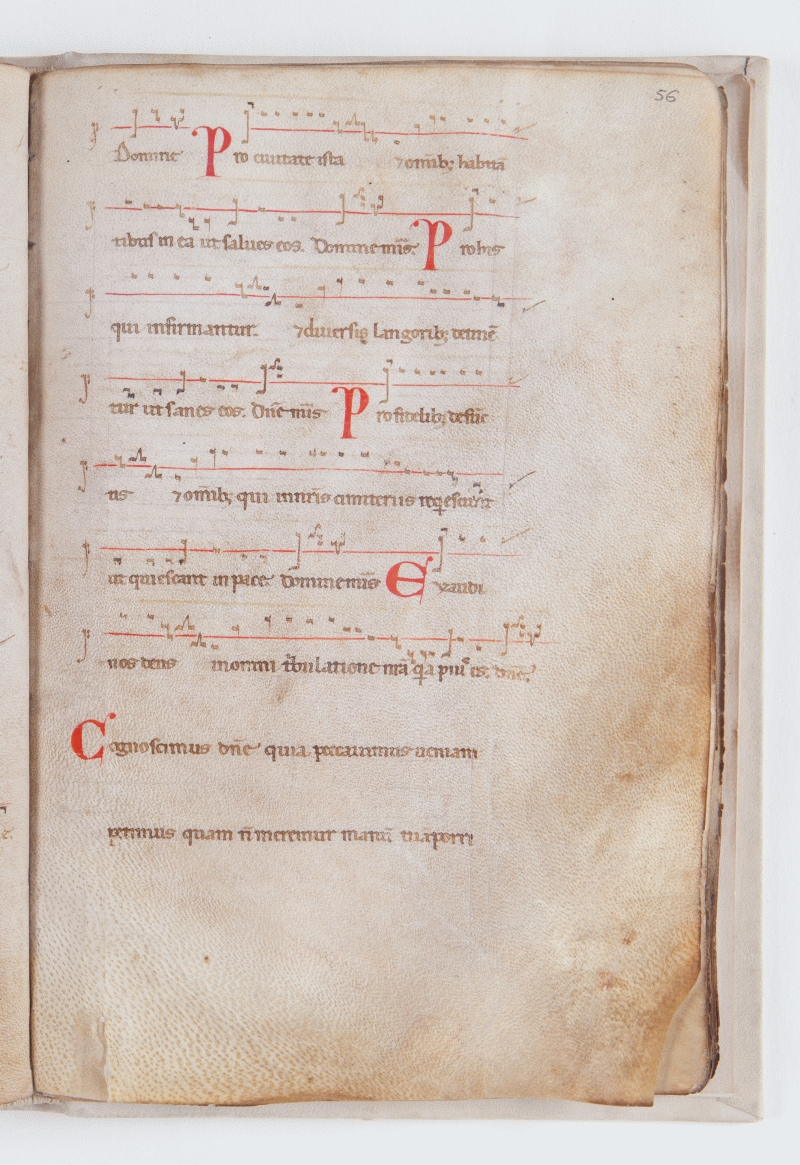 56
Domine Pro ciuitate ista ⁊ omib; habita
tibus in ea ut salues eos. Domine mis̄. Pro his
qui infirmantur. ⁊ diuersis langorib; detinē
tur ut sanes eos. Dn̄e mis̄ Pro fidelib; defūc
tis ⁊ omib; qui in nr̄is cimiteriis
ut quiescant in pace. domine mis̄ Exaudi
nos deus in omni tribulatione nr̄a q̇a piuˢ es. dn̄e.
Cognoscimus dn̄e quia peccauimus ueniam
petimus quam n̄ meremur manū tua porri